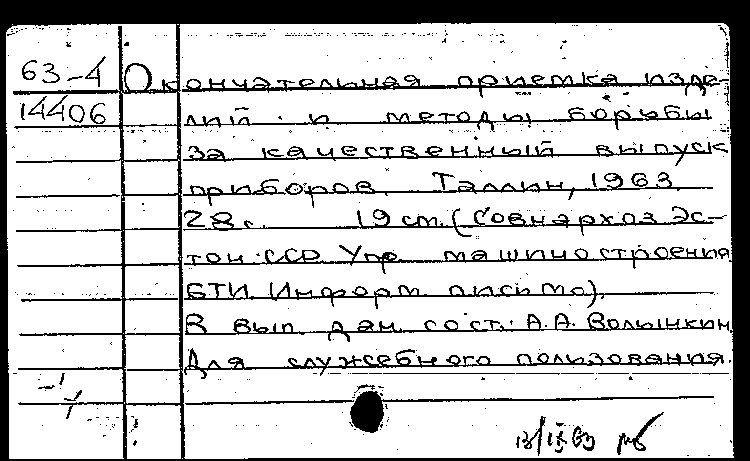 63-4 Окончательная приемка изде-
14406 лий и методы борьбы
за качественный выпуск
приборов. Таллин, 1963.
28 с. 19 см. (Совнархоз Эс-
тон. ССР. Упр. машиностроения
БТИ. Информ. письмо).
В вып. дан. сост.: А.А. Волынкин
Для служебного пользования.